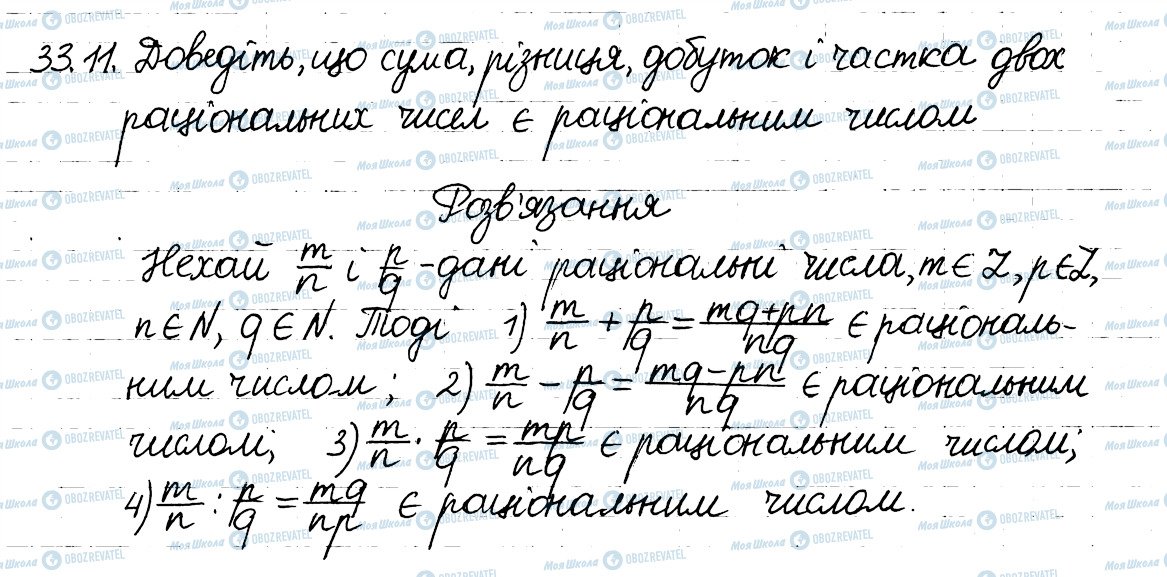 33.11. Доведіть, що сума, різниця, добуток і частка двох
раціональних чисел є раціональним числом
Розв'язання
Нехай m/n і p/q - дані раціональні числа, m ∈ Z, p ∈ Z,
n ∈ N, q ∈ N. Тоді 1) m/n + p/q = (mq+pn)/(nq) є раціональ-
ним числом; 2) m/n - p/q = (mq-pn)/(nq) є раціональним
числом; 3) m/n · p/q = mp/nq є раціональним числом;
4) m/n : p/q = mq/np є раціональним числом.